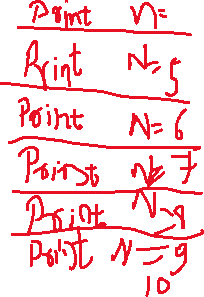 Print n=
Print N=5
Print N=6
Print n=7
Print N=8
Print N=9
10